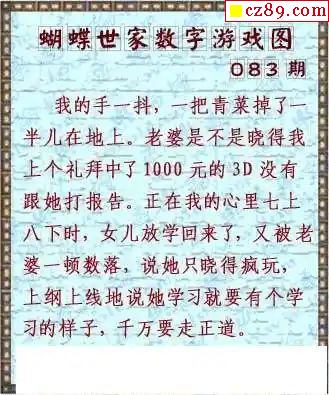 cz89.com
蝴蝶世家数字游戏图
083期
我的手一抖，一把青菜掉了一
半儿在地上。老婆是不是晓得我
上个礼拜中了1000元的3D没有
跟她打报告。正在我的心里七上
八下时，女儿放学回来了，又被老
婆一顿数落，说她只晓得疯玩，
上纲上线地说她学习就要有个学
习的样子，千万要走正道。